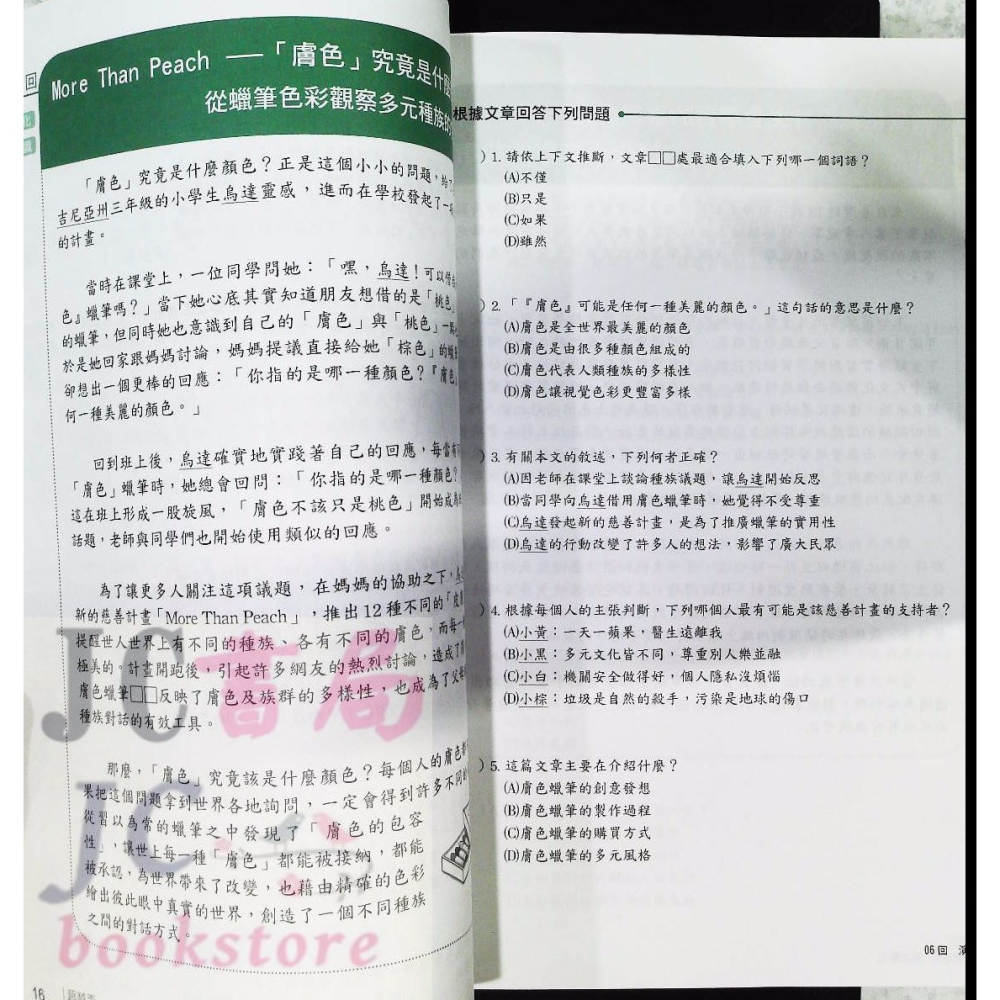 回
More Than Peach ——「膚色」究竟是什麼
從蠟筆色彩觀察多元種族的
「膚色」究竟是什麼顏色？正是這個小小的問題，給了
吉尼亞州三年級的小學生烏達靈感，進而在學校發起了一
的計畫。
當時在課堂上，一位同學問她：「嘿，烏達！可以借
色』蠟筆嗎？」當下她心底其實知道朋友想借的是「桃色」
的蠟筆，但同時她也意識到自己的「膚色」與「桃色」一
於是她回家跟媽媽討論，媽媽提議直接給她「棕色」的蠟
卻想出一個更棒的回應：「你指的是哪一種顏色？『膚色
何一種美麗的顏色。」
回到班上後，烏達確實地實踐著自己的回應，每當有
「膚色」蠟筆時，她總會回問：「你指的是哪一種顏色？
這在班上形成一股旋風，「膚色不該只是桃色」開始成為
話題，老師與同學們也開始使用類似的回應。
為了讓更多人關注這項議題，在媽媽的協助之下，
新的慈善計畫「More Than Peach」，推出12種不同的「皮
提醒世人世界上有不同的種族、各有不同的膚色，而每一
極美的。計畫開跑後，引起許多網友的熱烈討論，造成了
膚色蠟筆□□反映了膚色及族群的多樣性，也成為了父母
種族對話的有效工具。
那麼，「膚色」究竟該是什麼顏色？每個人的膚色都
果把這個問題拿到世界各地詢問，一定會得到許多不同的
從習以為常的蠟筆之中發現了「膚色的包容
性」，讓世上每一種「膚色」都能被接納，都能
被承認，為世界帶來了改變，也藉由精確的色彩
繪出彼此眼中真實的世界，創造了一個不同種族
之間的對話方式。
16
根據文章回答下列問題
）1. 請依上下文推斷，文章□□處最適合填入下列哪一個詞語？
(A)不僅
(B)只是
(C)如果
(D)雖然
）2. 「『膚色』可能是任何一種美麗的顏色。」這句話的意思是什麼？
(A)膚色是全世界最美麗的顏色
(B)膚色是由很多種顏色組成的
(C)膚色代表人類種族的多樣性
(D)膚色讓視覺色彩更豐富多樣
）3. 有關本文的敘述，下列何者正確？
(A)因老師在課堂上談論種族議題，讓烏達開始反思
(B)當同學向烏達借用膚色蠟筆時，她覺得不受尊重
(C)烏達發起新的慈善計畫，是為了推廣蠟筆的實用性
(D)烏達的行動改變了許多人的想法，影響了廣大民眾
）4. 根據每個人的主張判斷，下列哪個人最有可能是該慈善計畫的支持者？
(A)小黃：一天一蘋果，醫生遠離我
(B)小黑：多元文化皆不同，尊重別人樂並融
(C)小白：機關安全做得好，個人隱私沒煩惱
(D)小棕：垃圾是自然的殺手，污染是地球的傷口
）5. 這篇文章主要在介紹什麼？
(A)膚色蠟筆的創意發想
(B)膚色蠟筆的製作過程
(C)膚色蠟筆的購買方式
(D)膚色蠟筆的多元風格
06回
JC書局
JC
bookstore